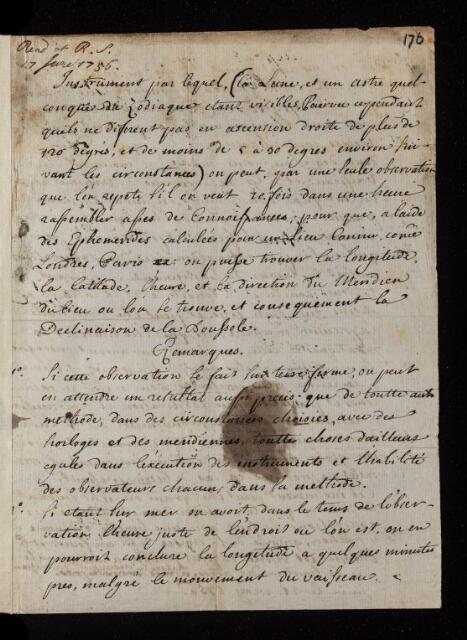 Read at R. S.
17 June 1756.
176
Instrument par lequel, (la Lune, et un astre quel-
conque du Zodiaque etant visibles, pourvu cependant
quils ne different pas en ascension droite de plus de
120 degrés, et de moins de 5 a 30 degres environ sui-
vant les circonstances) on peut, par une seule observation
que l'on repete s'il on veut 20 fois dans une heure
rassembler assés de Connoissances, pour que, a laide
des Ephemerides calculées pour un Lieu Connu, com̄e
Londres, Paris on puisse trouver la longitude,
la Latitude, l'heure, et la direction du Meridien
du Lieu ou lon se trouve, et consequement la
Declinaison de la Boussole.
Remarques.
1°. Si cette observation se fait sur terre ferme, on peut
en attendre un resultat aussi precis que de toutte autre
methode, dans des circonstances choisies, avec des
horloges et des meridiennes, toutte choses dailleurs
egales dans l'execution des instruments et l'habilité
des observateurs chacuns dans sa methode.
Si etant sur mer on avoit dans le tems de l'obser-
vation l'heure juste de l'endroit ou l'on est, on en
pourroit conclure la longitude a quelques minutes
pres, malgré le mouvement du vaisseau.